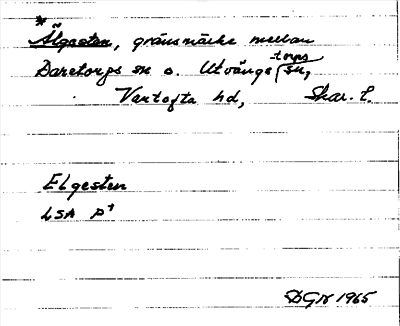 * Älgesten, gränsmärke mellan
Daretorps sn o. Utvängstorps sn,
Vartofta hd, Skar. l.
Elgesten
LSA P⁺
DGN 1965